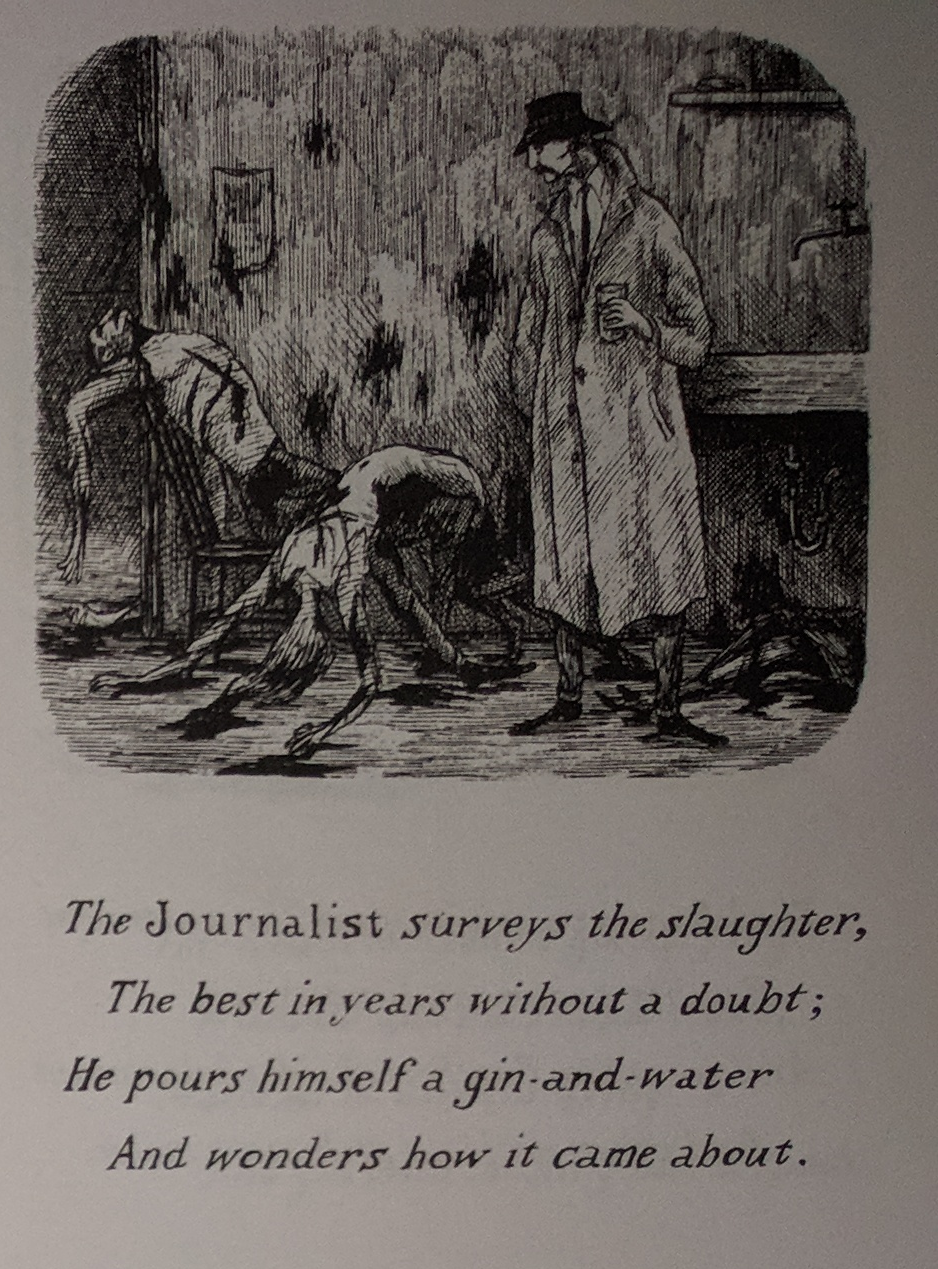 The Journalist surveys the slaughter,
The best in years without a doubt;
He pours himself a gin-and-water
And wonders how it came about.